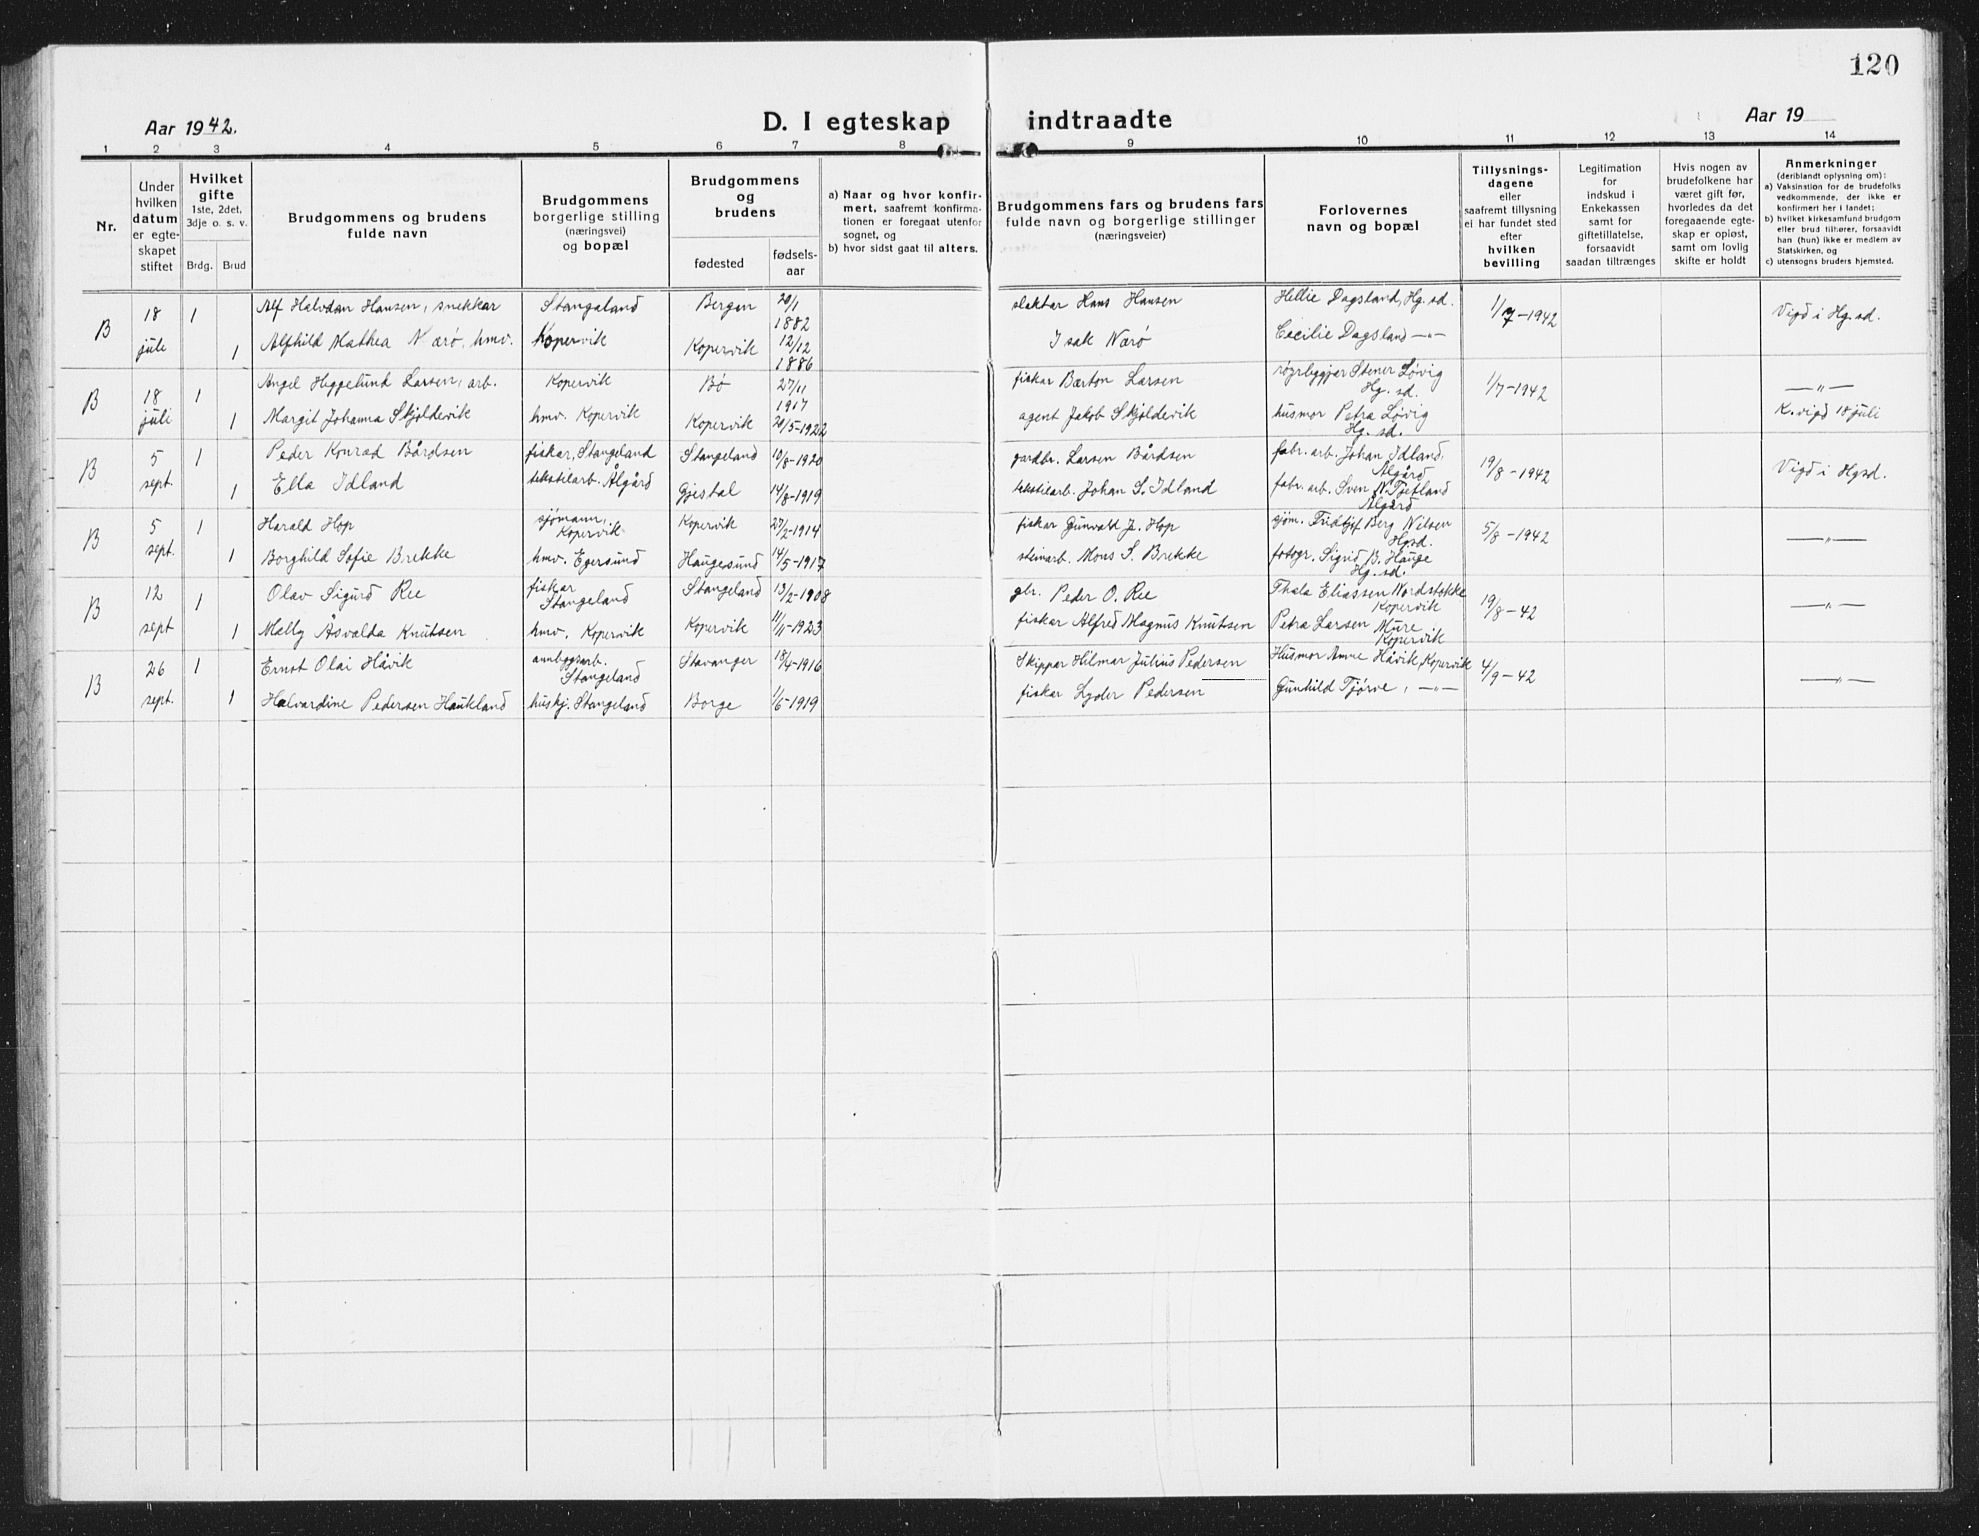 120
Aar 1942.
D. I egteskap indtraadte
Aar 19
1 2 3 4 5 6 7 8 9 10 11 12 13 14
Nr.
Under
hvilken
datum
er egte-
skapet
stiftet
Hvilket
gifte
1ste, 2det,
3dje o. s. v.
Brdg. Brud
Brudgommens og brudens
fulde navn
Brudgommens
borgerlige stilling
(næringsvei)
og bopæl
Brudgommens
og
brudens
fødested
fødsels-
aar
a) Naar og hvor konfir-
mert, saafremt konfirma-
tionen er foregaat utenfor
sognet, og
b) hvor sidst gaat til alters.
Brudgommens fars og brudens fars
fulde navn og borgerlige stillinger
(næringsveier)
Forlovernes
navn og bopæl
Tillysnings-
dagene
eller
saafremt tillysning
ei har fundet sted
efter
hvilken
bevilling
Legitimation
for
indskud i
Enkekassen
samt for
giftetillatelse,
forsaavidt
saadan tiltrænges
Hvis nogen av
brudefolkene har
været gift før,
hvorledes da det
foregaaende egte-
skap er opløst,
samt om lovlig
skifte er holdt
Anmerkninger
(deriblandt oplysning om):
a) Vaksinstion for de brudefolks
vedkommende, der ikke er
konfirmert her i landet;
b) hvilket kirkesamfund brudgom
eller brud tilhører, forsaavidt
han (hun) ikke er medlem av
Statskirken, og
c) utensogns bruders hjemsted.
B 18 1 Alf Halvdan Hansen, snekkar Stangaland Bergen 20/1 1882 slaktar Hans Hansen Hellie Dagsland, Hg. sd. 1/7-1942 Vigd i Hg. sd.
juli 1 Alfhild Mathea Nærø, hmv. Kopervik Kopervik 12/12 1886 Isak Nærø Cecilie Dagsland -"-
B 18 1 Angel Heggelund Larsen, arb. Kopervik Bø 27/11 1917 fiskar Barton Larsen røyrleggjar Stener Løvig Hg. sd. 1/7-1942 -"-
juli 1 Margit Johanna Skjoldevik hmv. Kopervik Kopervik 20/5-1922 agent Jakob Skjoldevik husmor Petra Løvig Hg. sd. K. vigd 18 juli
B 5 1 Peder Konrad Bårdsen fiskar, Stangeland Stangeland 10/8-1920 gardbr. Larsen Bårdsen fabr. arb. Johan Idland, Ålgård 19/8-1942 Vigd i Hgsd.
sept. 1 Ella Idland tekstilarb. Ålgård Gjestal 14/8-1919 tekstilarb. Johan S. Idland fabr. arb. Sven N. Tjetland Ålgård
B 5 1 Harald Hop sjømann, Kopervik Kopervik 27/2-1914 fiskar Gunvald J. Hop sjøm. Fridtjof Berg Nilsen Hgsd. 5/8-1942 -"-
sept. 1 Borghild Sofie Brekke hmv. Egersund Haugesund 14/5-1917 steinarb. Mons S. Brekke fotogr. Sigrid B. Hauge Hg. sd.
B 12 1 Olav Sigurd Ree fiskar Stangeland Stangeland 13/2-1908 gbr. Peder O. Ree Thala Eliassen Nordstokke Kopervik 19/8-42 -"-
sept 1 Mally Åsvalda Knutsen hmv. Kopervik Kopervik 11/11-1923 fiskar Alfred Magnus Knutsen Petra Larsen Mure Kopervik
B 26 1 Ernst Olai Håvik Stangeland Stavanger 18/4-1916 Skippar Hilmar Julius Pedersen Husmor Anne Håvik, Kopervik 4/9-42 -"-
sept. 1 Halvardine Pedersen Haukland huskj. Stangeland Borge 1/6-1919 fiskar Lyder Pedersen Gunhild Tjørve, -"-